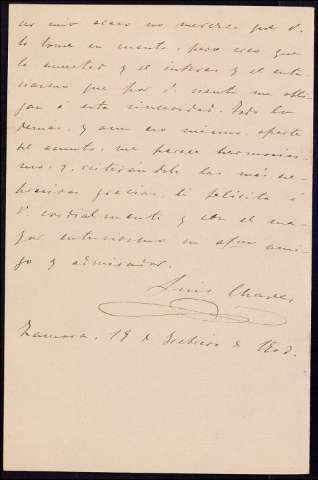 no merezca que V.
lo tome en cuenta, pero creo que
la amistad y el interés y el entu-
siasmo que por V. siento me obli-
gan á esta sinceridad. Todo lo
demás, y aun eso mismo, aparte
del asunto, me parece hermosísi-
mo, y, las más ex-
presivas gracias, le felicita á
V. cordialmente y con el ma-
yor entusiasmo su afmo ami-
go y admirador.
Luis Chaves
Zamora, 19 de de 1903.